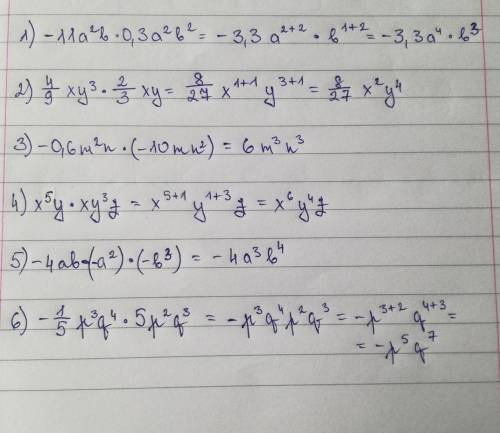 1) -11a²b · 0,3a²b² = -3,3 a²⁺² · b¹⁺² = -3,3a⁴ · b³
2) 4/9 xy³ · 2/3 xy = 8/27 x¹⁺¹ y³⁺¹ = 8/27 x²y⁴
3) -0,6m²n · (-10mn²) = 6m³n³
4) x⁵y · xy³z = x⁵⁺¹ y¹⁺³ z = x⁶y⁴z
5) -4ab · (-a²) · (-b³) = -4a³b⁴
6) -1/5 p³q⁴ · 5p²q³ = -p³q⁴p²q³ = -p³⁺² q⁴⁺³ =
= -p⁵q⁷